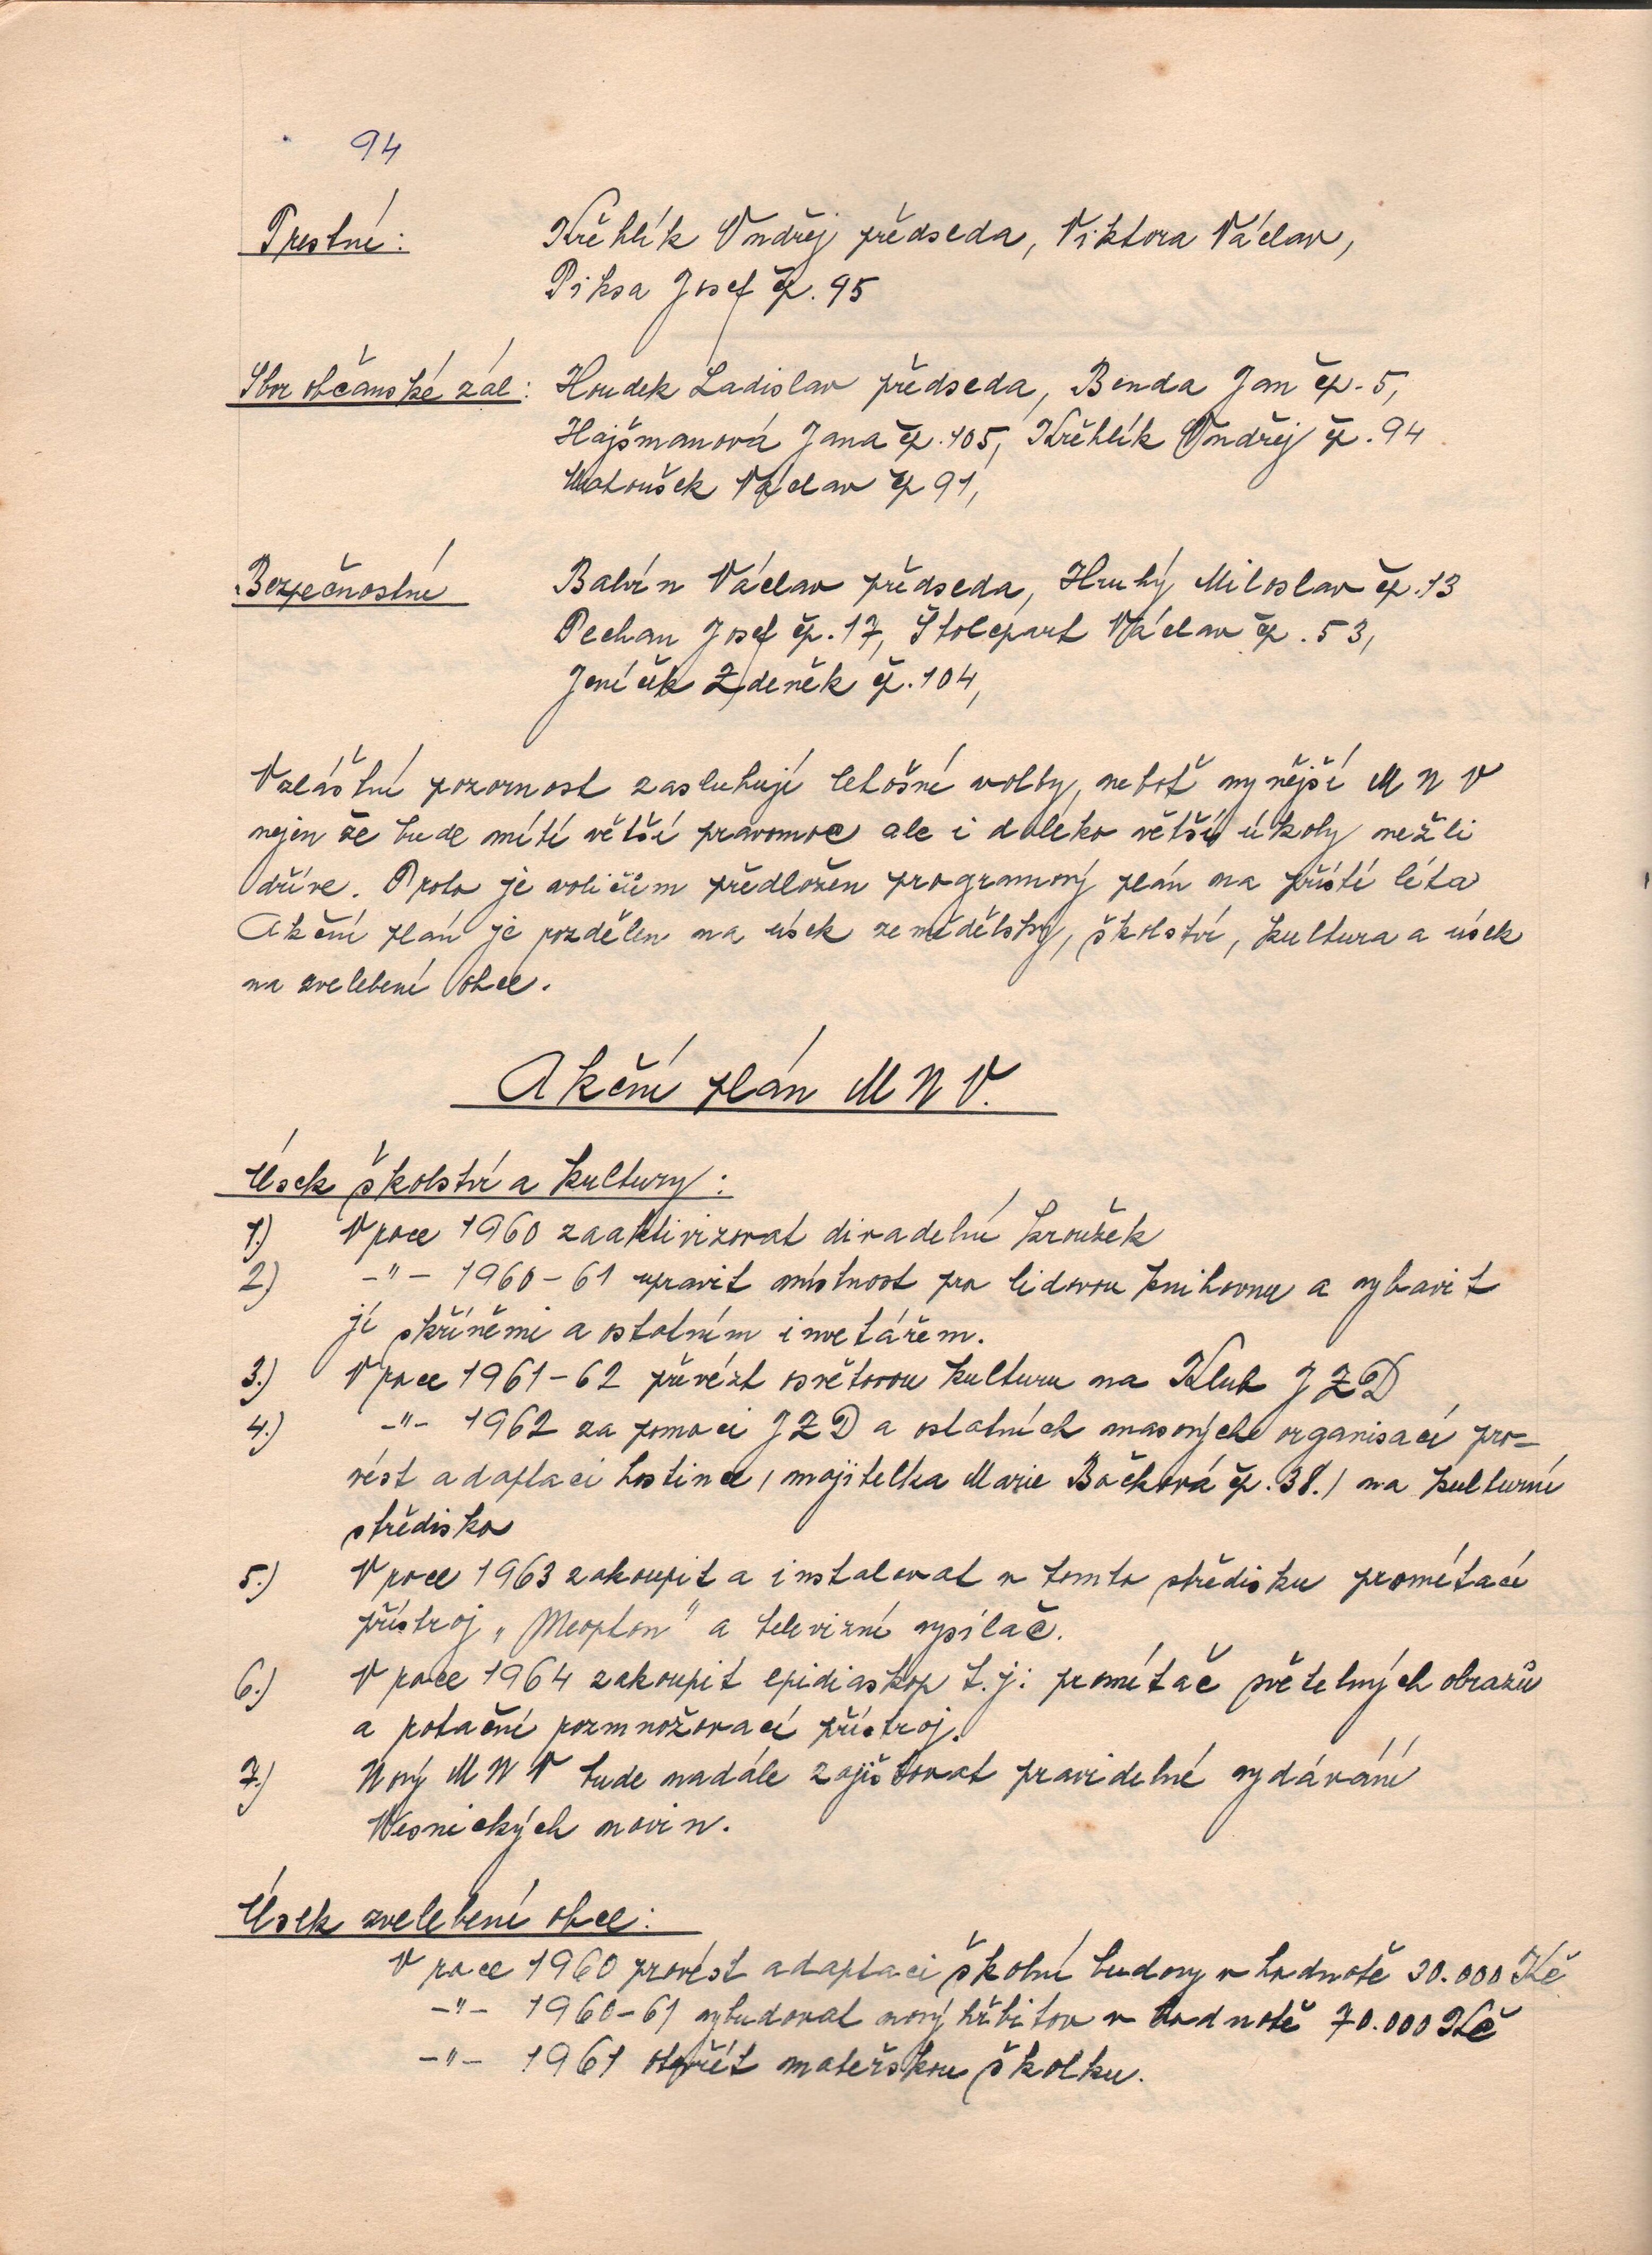 94
Trestní: Křehlík Ondřej předseda, Viktora Václav,
Piksa Josef čp. 95
Sbor občanské zál: Houdek Ladislav předseda, Benda Jan čp. 5,
Hajšmanová Jana čp. 105, Křehlík Ondřej čp. 94
Matoušek Václav čp 91,
Bezpečnostní Balvín Václav předseda, Hrubý Miloslav čp. 13
Pechan Josef čp. 17, Štolcpart Václav čp. 53,
Jeníček Zdeněk čp. 104,
Vzláštní pozornost zasluhují letošní volby, neboť nynější M N V
nejen že bude míti větší pravomoc ale i daleko větší úkoly nežli
dříve. Proto je voličům předložen programový plán na příští léta
Akční plán je rozdělen na úsek zemědělský, školství, kultura a úsek
na zvelebení obce.
Akční plán M N V.
Úsek školství a kultury:
1.) V roce 1960 zaaktivizovat divadelní kroužek
2.) -"- 1960-61 upravit místnost pro lidovou knihovnu a vybavit
jí skříněmi a ostatním invetářem.
3.) V roce 1961-62 převézt osvětovou kulturu na Klub J Z D
4.) -"- 1962 za pomoci J Z D a ostatních masových organisací pro-
vést adaptaci hostince / majitelka Marie Bočková čp. 38. / na kulturní
středisko
5.) V roce 1963 zakoupit a instalovat v tomto středisku promítací
přístroj „Meopton" a televizní vysílač.
6.) V roce 1964 zakoupit epidiaskop t.j: promítač světelných obrazů
a rotační rozmnožovací přístroj.
7.) Nový M N V bude nadále zajišťovat pravidelné vydávání
Vesnických novin.
Úsek zvelebení obce:
V roce 1960 provést adaptaci školní budovy v hodnotě 30.000 Kč
-"- 1960-61 vybudovat nový hřbitov v hodnotě 70.000 Kč
-"- 1961 otevřít mateřskou školku.